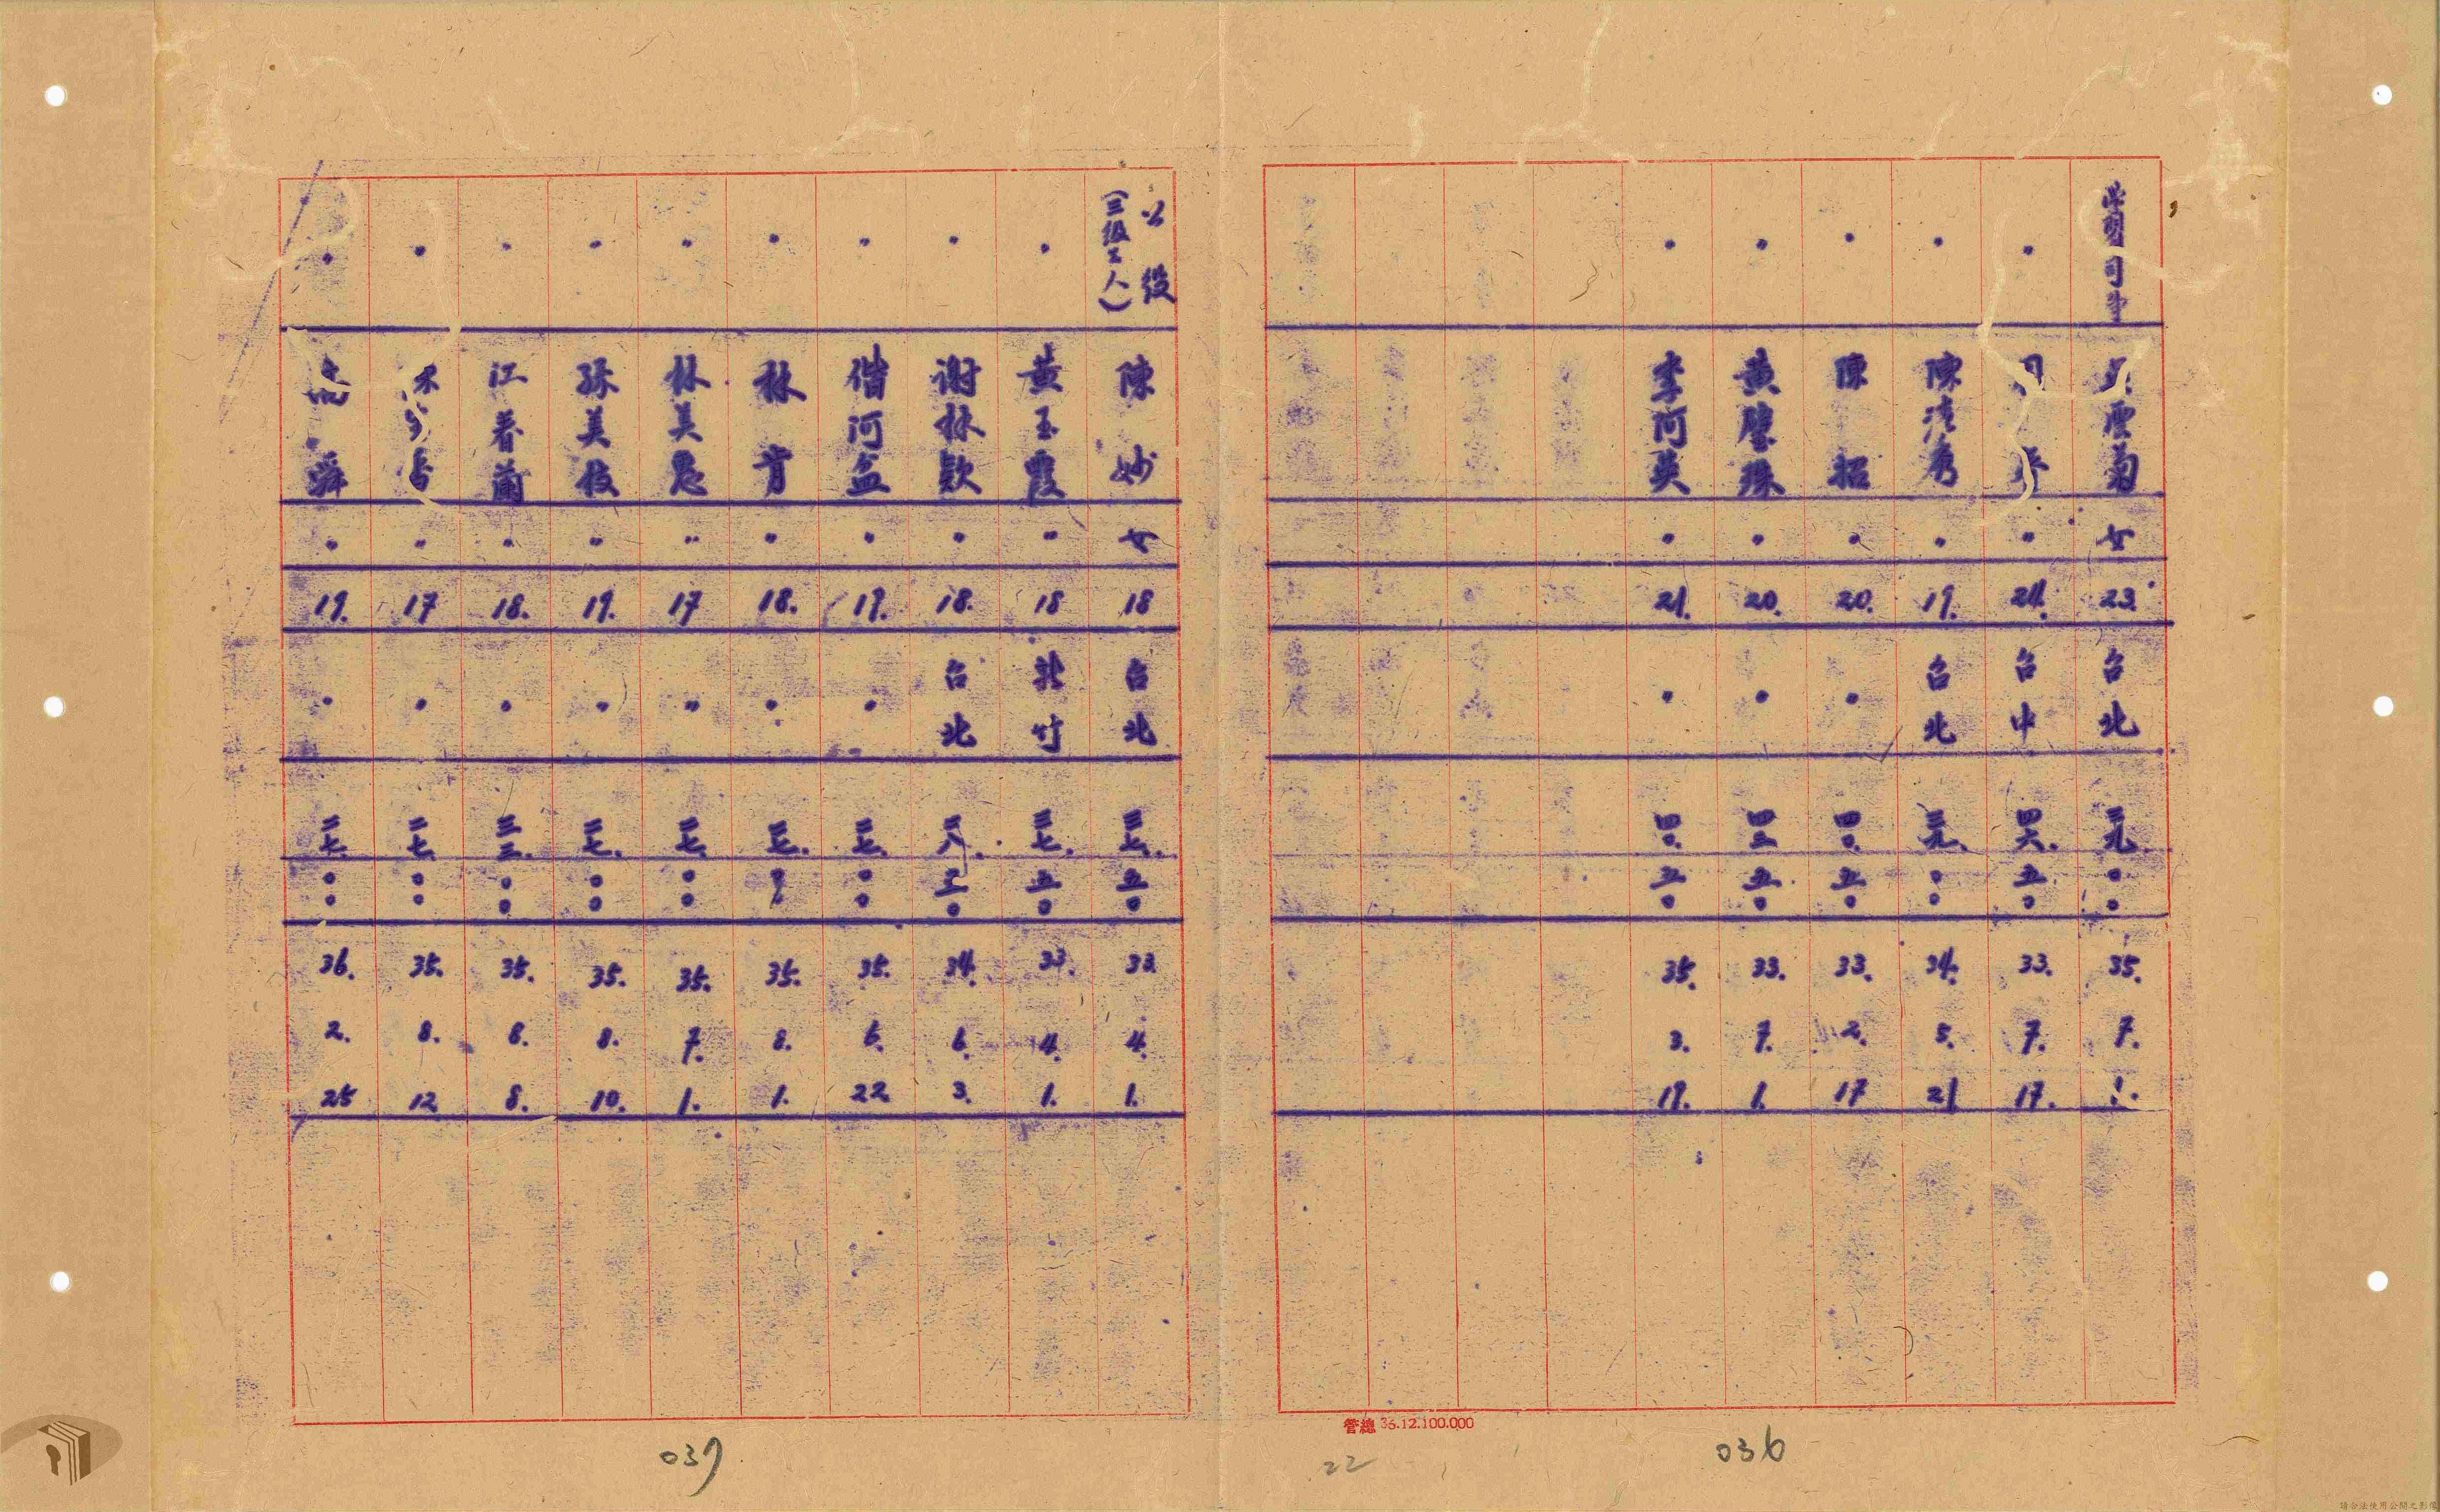 女 23. 台北 三九. 〇〇 35. 7. 1.
〃 〃 台中 四六. 五〇 33. 7. 17.
〃 陳清秀 〃 19. 台北 三九. 〇〇 34. 5. 21
〃 陳招 〃 20. 〃 四〇. 五〇 33. 2. 17
〃 黃壁珠 〃 20. 〃 四三 五〇 33. 7. 1.
〃 李阿英 〃 21. 〃 四〇. 五〇 35. 3. 19.
管總 36.12.100.000
22
036
公役
(三級工人)
陳妙 女 18 台北 三七. 五〇 33 4. 1.
〃 黃玉霞 〃 18 新竹 三七. 五〇 33. 4. 1.
〃 謝林款 〃 18. 台北 34. 6. 3.
〃 〃 19. 〃 三七. 〇〇 35. 6. 22
〃 林肯 〃 18. 〃 三七. 35. 8. 1.
〃 林美 〃 17 〃 三七 〇〇 35. 7. 1.
〃 孫美枝 〃 19. 〃 三七. 〇〇 35. 8. 10.
〃 江春蘭 〃 18. 〃 三三. 〇〇 35. 8. 8.
〃 〃 17 〃 三七 〇〇 35. 8. 12
〃 〃 19. 〃 三七 〇〇 36. 2. 25
037
請合法使用公開之影像